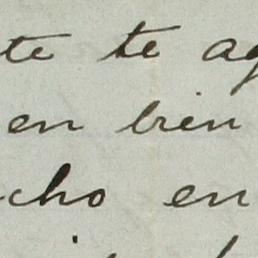 te te ag
en bien
cho en